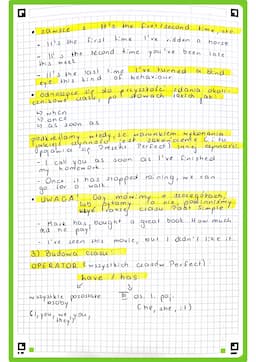 • zawsze z It's the first/second time, etc
- It's the first time I've ridden a horse
- It's the second time you've been late
this week
- It's the last time I've turned a blind
eye this kind of behaviour
• odnoszące się do przyszłości zdania okoli-
cznikowe czasu, po słowach takich jak:
→ when
→ once
→ as soon as
podkreślamy wtedy, że warunkiem wykonania
jakiejś czynności jest zakończenie (i to
opisania się Present Perfect) innej czynności
- I call you as soon as I've finished
my homework
- Once it has stopped raining, we can
go for a walk.
• UWAGA! Gdy mówimy o szczegółach,
lub pytamy o nie, powinniśmy
użyć raczej czasu Past Simple
- Mark has bought a great book. How much
did he pay?
- I've seen this movie, but I didn't like it.
3) Budowa czasu:
OPERATOR (wszystkich czasów Perfect)
have / has
→ wszystkie pozostałe
osoby
(I, you, we, you,
they)
III os. l. poj.
(he, she, it)